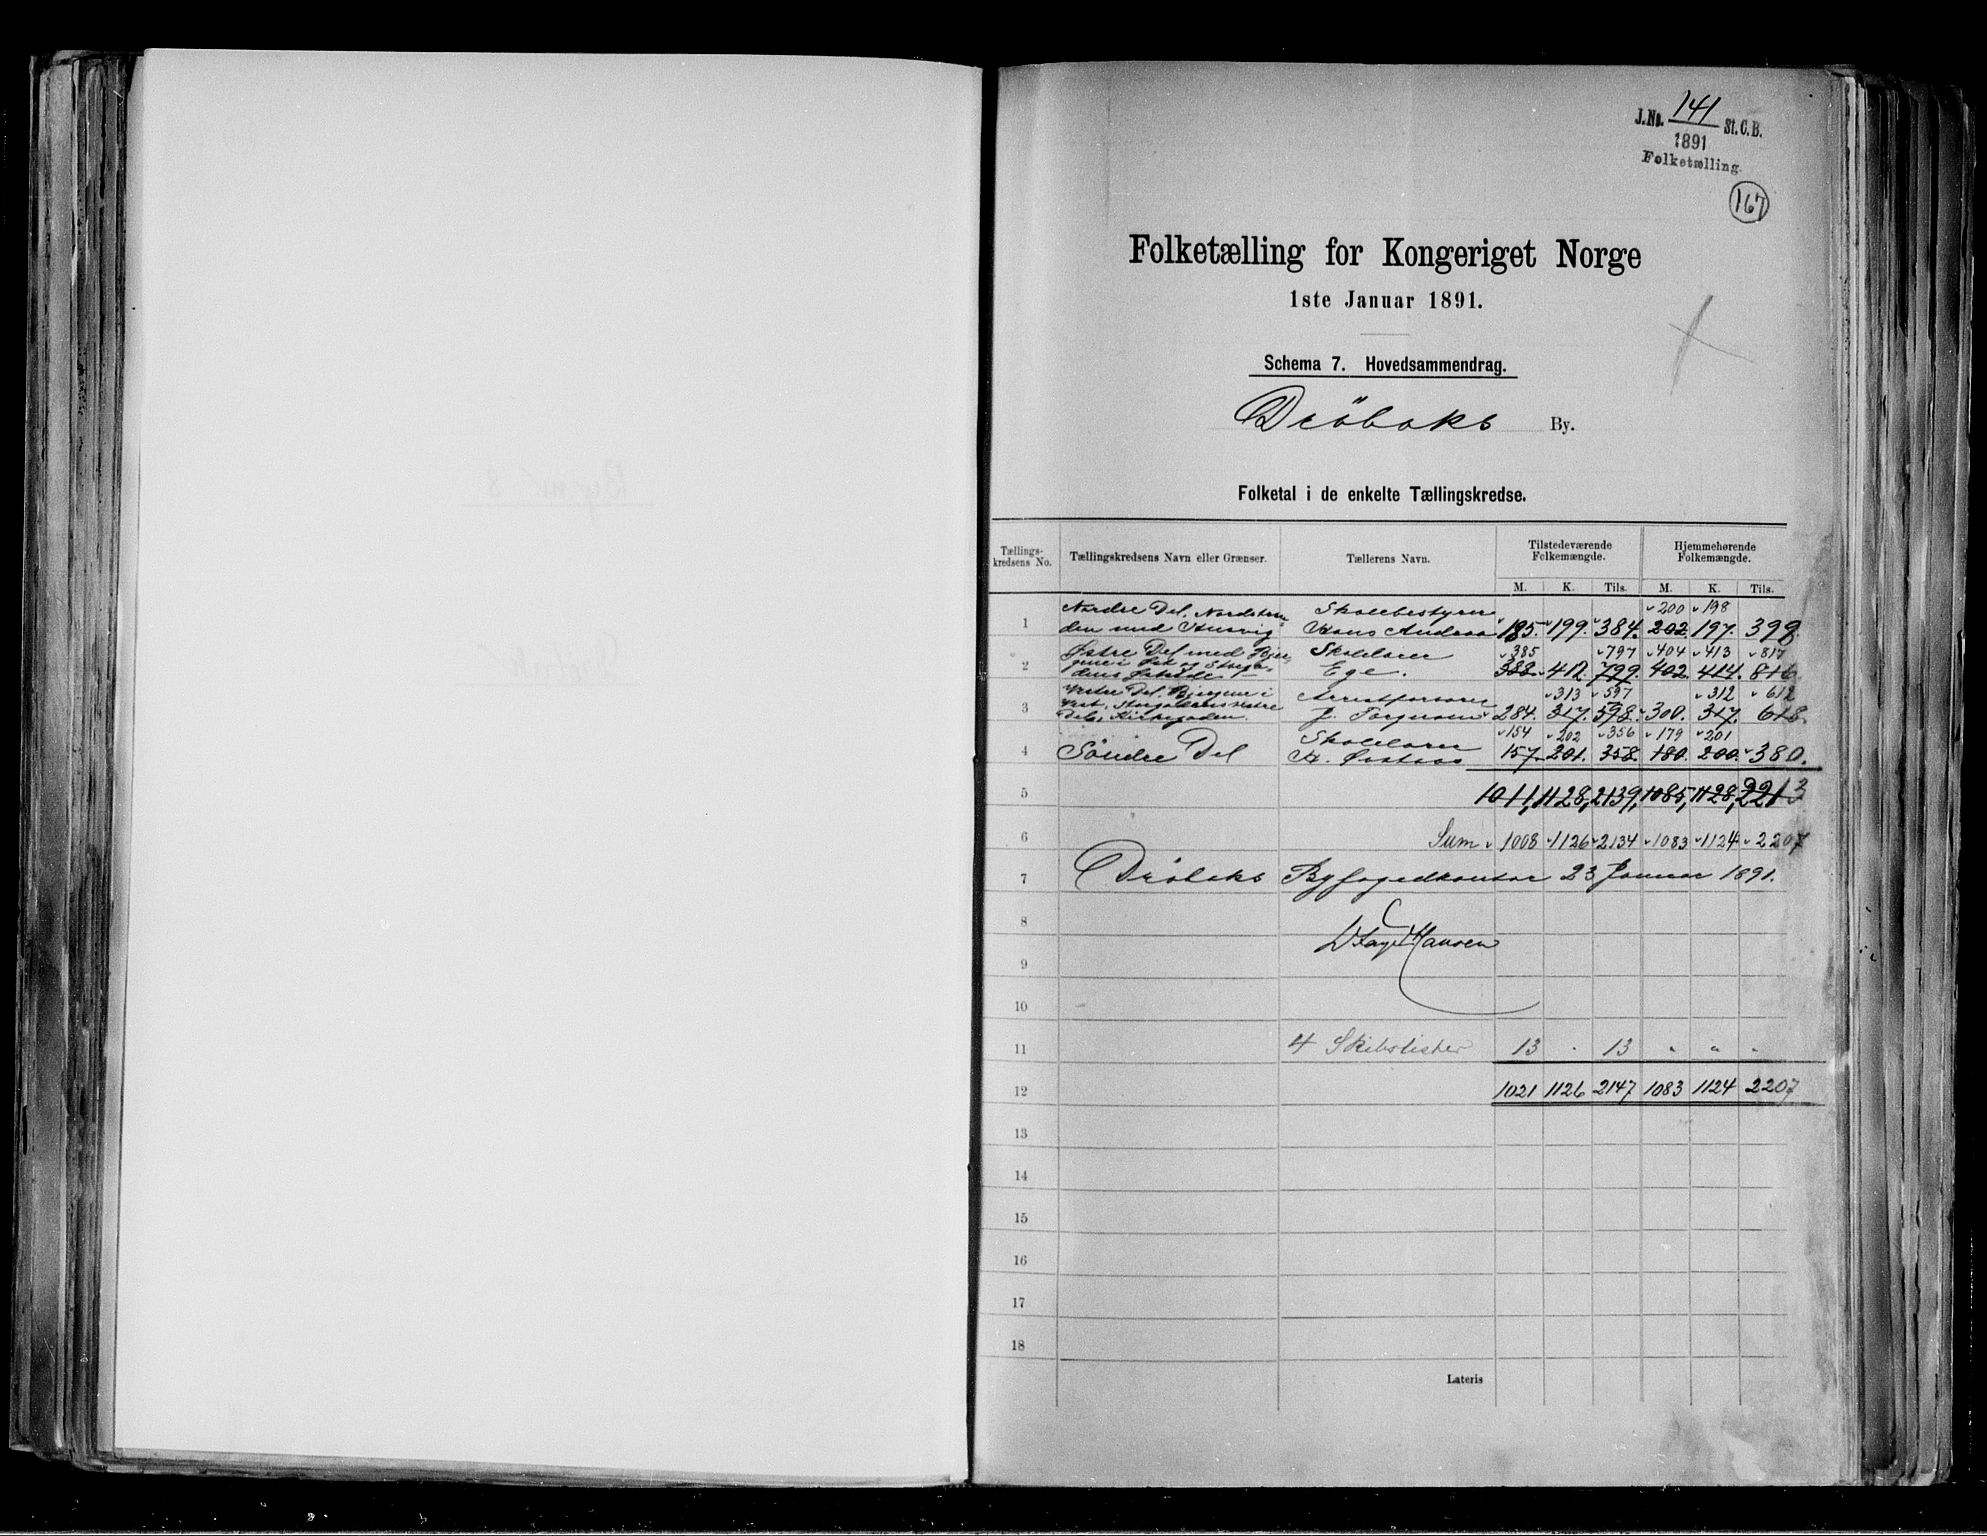 J.No. 141 St. C. B.
1891
Folketælling.
167
Folketælling for Kongeriget Norge
1ste Januar 1891.
Schema 7. Hovedsammendrag.
Dröbaks By.
Folketal i de enkelte Tællingskredse.
Tællings-kredsens No. Tællingskredsens Navn eller Grænser. Tællerens Navn. Tilstedeværende Folkemængde. Hjemmehørende Folkemængde.
M. K. Tils. M. K. Tils.
Nordre Del, Skolebestyrer 200 198
1 den med Husvig Hans 185. 199. 384. 202. 197. 398.
Østre Del med Skolelærer 385 797 404 413 817
2 Ege. 388. 412. 799. 402. 414. 816.
Vestre Del, Bjergene i 313 597 312 612
3 Kirkegaden. J. 284. 317. 598. 300. 317. 618.
Skolelærer 154 202 356 179 201
4 Söndre Del 157. 201. 358. 180. 200. 380.
5 1011, 1128, 2139, 1085, 1128, 2213
6 Sum 1008 1126 2134 1083 1124 2207
7 Dröbaks Byfogedkontor 23 Januar 1891.
8
9
10
11 4 Skibslister 13 - 13 " " "
12 1021 1126 2147 1083 1124 2207
13
14
15
16
17
18
Lateris